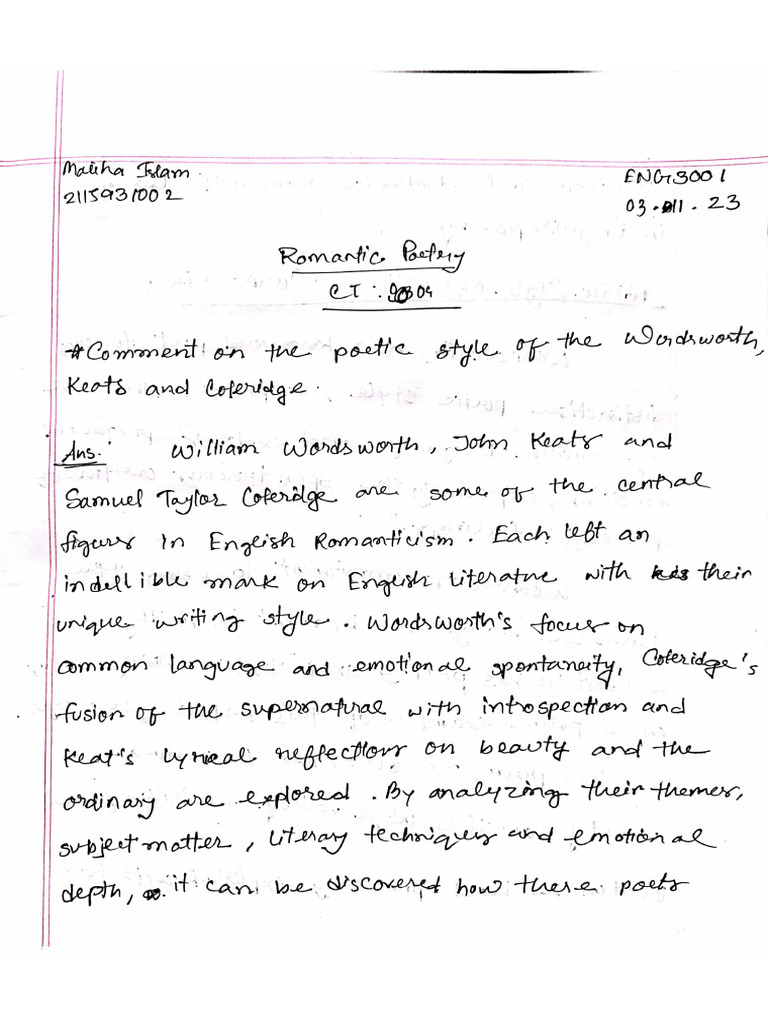 Maliha Islam
ENG3001
2115931002
03.11.23
Romantic Poetry
CT : 04
#Comment on the poetic style of the Wordsworth,
Keats and Coleridge.
Ans: William Wordsworth, John Keats and
Samuel Taylor Coleridge are some of the central
figures in English Romanticism. Each left an
indellible mark on English Literature with their
unique writing style. Wordsworth's focus on
common language and emotional spontaneity, Coleridge's
fusion of the supernatural with introspection and
Keat's Lyrical reflections on beauty and the
ordinary are explored. By analyzing their themes,
subject matter, literary techniques and emotional
depth, it can be discovered how these poets